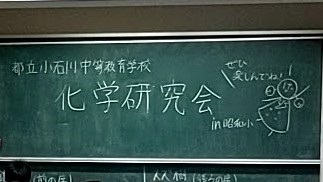 都立小石川中等教育学校
化学研究会
ぜひ
楽しんでね!
in 昭和小
(前の扉)